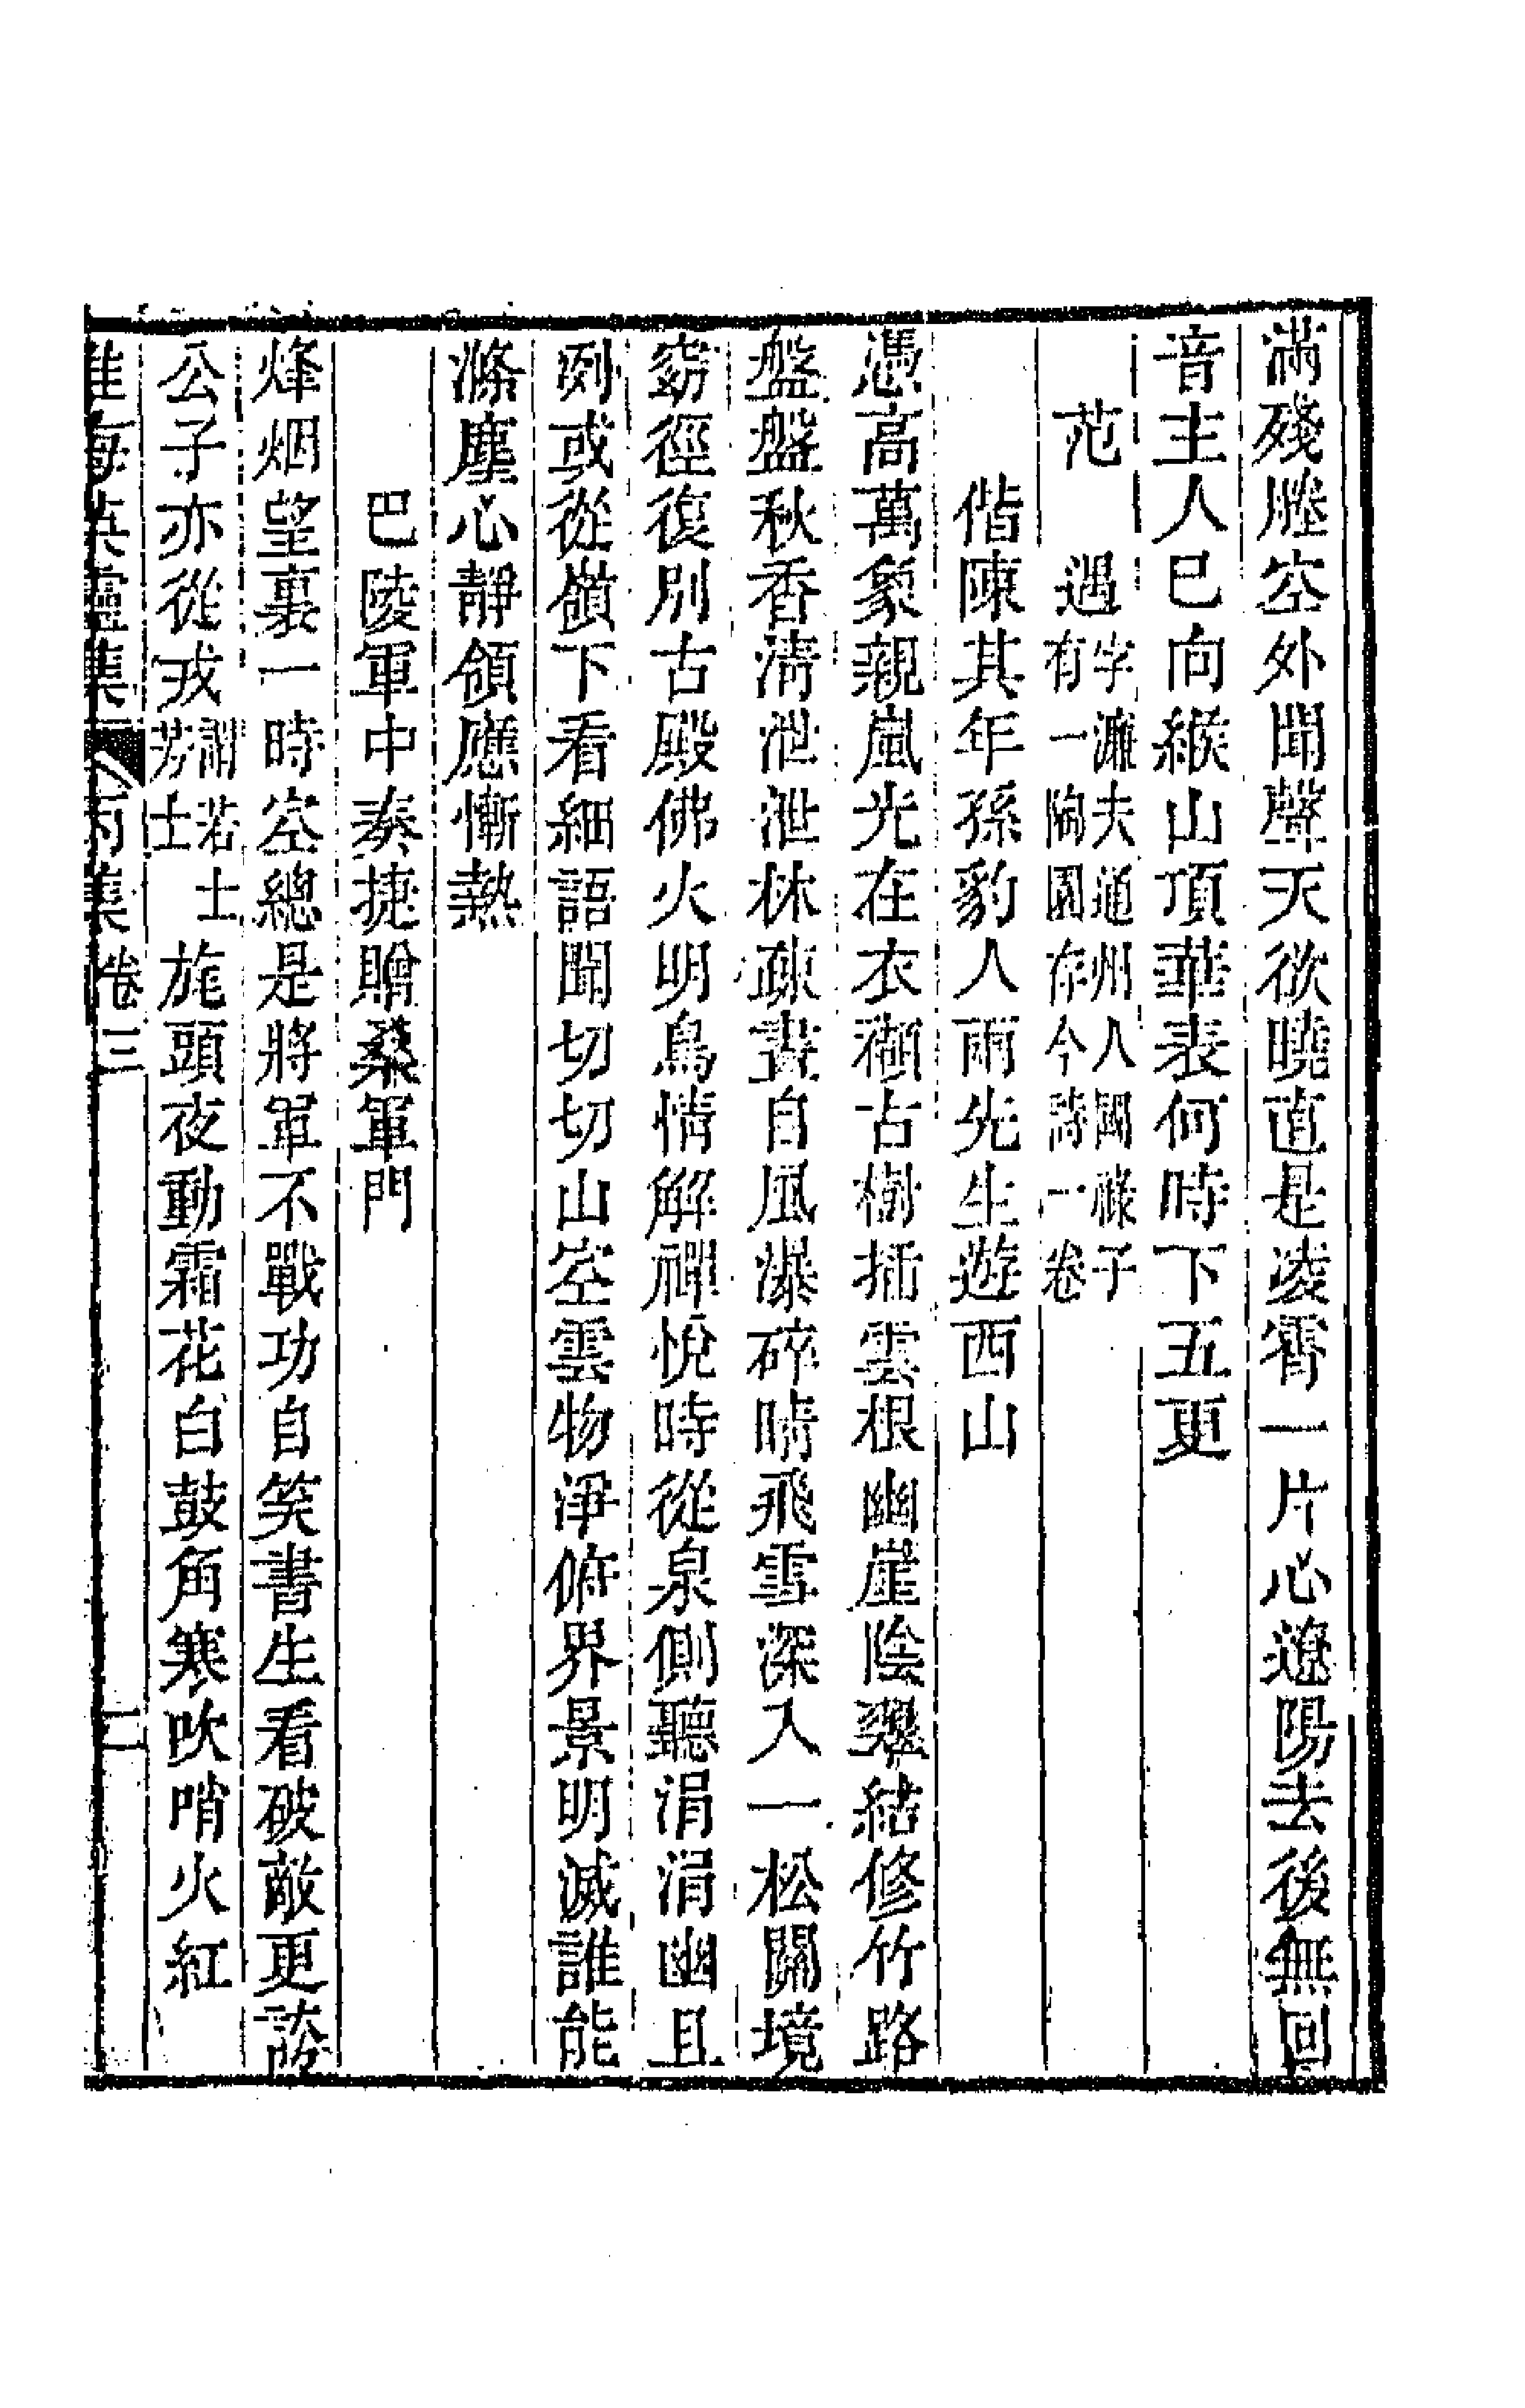 滿殘塍空外聞聲天欲曉直是凌霄一片心遼陽去後無回
音主人已向緱山頂華表何時下五更
范　遇字濂夫通州人國祿子有一陶園存今詩一卷
偕陳其年孫豹人兩先生遊西山
憑高萬象親嵐光在衣襭古樹插雲根幽崖陰翠結修竹路
盤盤秋香清泄泄林疎晝自風瀑碎晴飛雪深入一松關境
窈徑復別古殿佛火明鳥情解禪悅時從泉側聽涓涓幽且
冽或從嶺下看細語聞切切山空雲物淨俯界景明滅誰能
滌塵心靜領應慚熱
巴陵軍中奏捷贈桑軍門
烽烟望裏一時空總是將軍不戰功自笑書生看破敵更誇
公子亦從戎謂若士芳士旄頭夜動霜花白鼓角寒吹哨火紅
淮海英靈集　丙集卷三　二